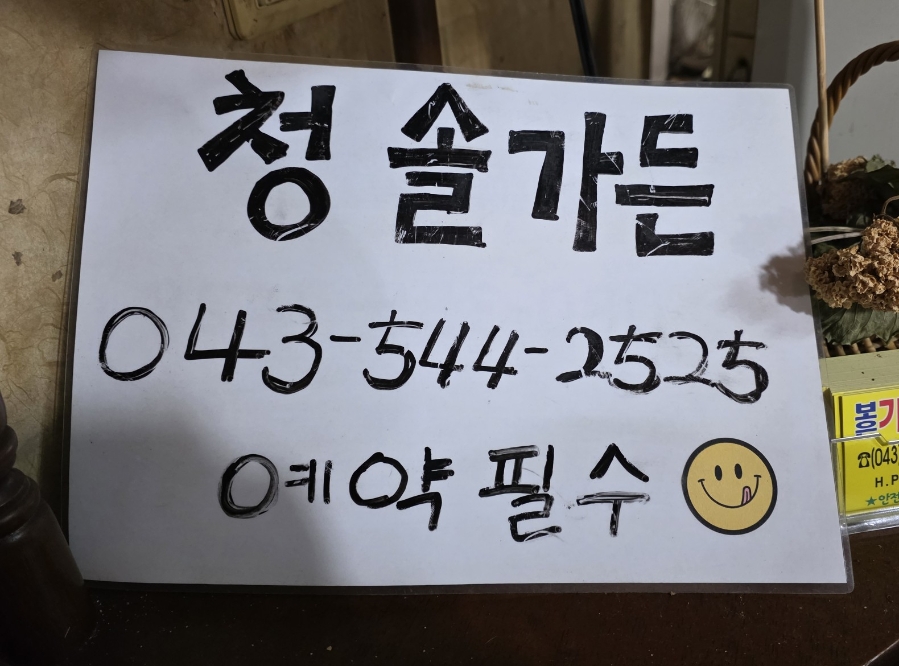 청솔가든
043-544-2525
예약 필수
☎(043)
H.P